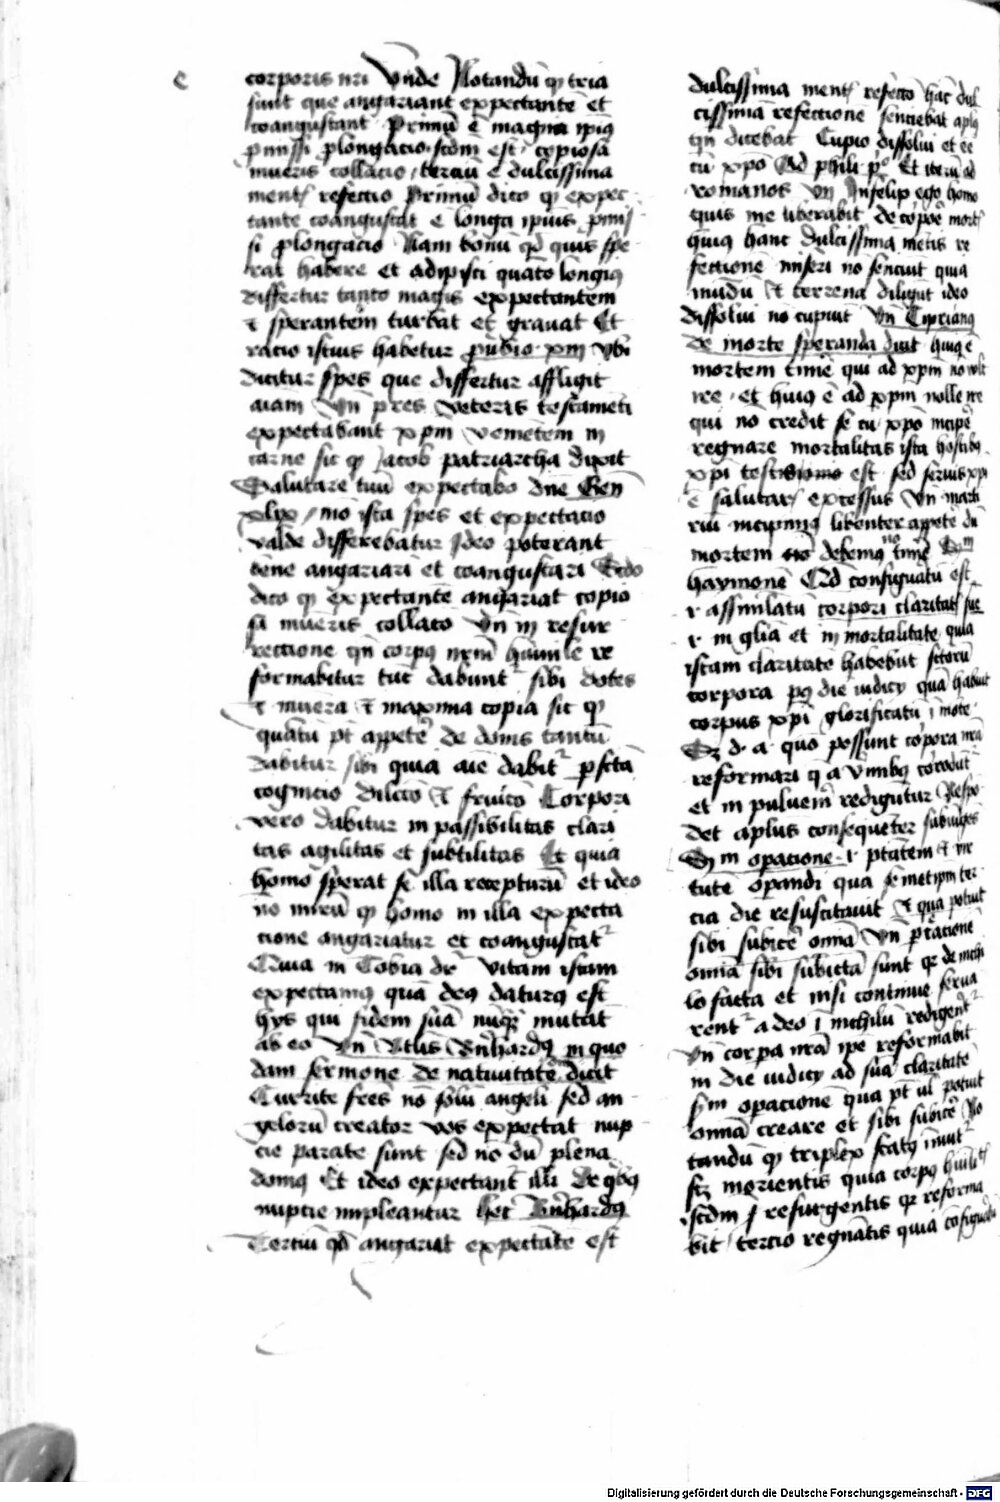 c
corporis nri Vnde Notandū qͥ tria
sunt que angariant expectante et
coangustant Primū ē magna ipiꝰ
pmissi plongacio scdm est copiosa
muneris collacio terciū ē dulcissima
ment refectio Primū dico qͥ expec
tante coangustat ē longa ipius pmis
si plongacio Nam bonū qd quis spe
rat habere et adipisci quāto longiꝰ
differtur tanto magis expectantem
et sperantem turbat et grauat Et
racio istius habetur prūbio xiii vbi
dicitur spes que differtur affligit
aiam Vn pres veteris testameti
expectabant xpm venietem in
carne sic qͥ Jacob patriarcha dixit
Salutare tuū expectabo dne Gen̄
xlix ista spes et expectacio
valde differebatur Jdeo poterant
bene angariari et coangustari Scdo
dico qͥ expectante angariat copio
sa mūeris collaco Vn in resur
rectione qn corpꝰ nrm humile re
formabitur tūc dabunt sibi dotes
et munera et maxima copia sic qͥ
quātū pt appete de donis tantū
dabitur sibi quia aīe dabit pfcta
cognicio dilcio et fruicō Corpori
vero dabitur inpassibilitas clari
tas agilitas et subtilitas Et quia
homo sperat se illa recepturū et ideo
nō mirū qͥ homo in illa expecta
cione angariatur et coangustat
Quia in Tobia dr vitam istam
expectamꝰ quā deꝰ daturꝰ est
hys qui fidem suā nūq mutāt
ab eo Vn̄ Bn̄hardꝰ in quo
dam sermone de natiuitate dicit
Currite fres nō solū angeli sed an
geloru creator vos expectat nup
cie parate sunt sed nō dū plena
domꝰ Et ideo expectant illi de qͥbꝰ
nupcie impleantur hec Bn̄hardꝰ
Terciū qd angariat expectāte est
dulcissima ment refectō hāc dul
cissimā refectione senciebat aplꝰ
qn dicebat Cupio dissolui et ēē
cū xpo Ad phili pº Et iterū ad
romanos Vn Jnfelix ego homo
quis me liberabit de corpore mort
huiꝰ hanc dulcissimā mētis re
fectionē miseri nō senciūt quia
mūdū et terrena diligūt ideo
dissolui nō cupiūt Vn Ciprianꝰ
de morte speranda dicit huiꝰ ē
mortem timē qui ad xpm nō vlt
ire et huiꝰ ē ad xpm nolle ire
qui nō credit se cū xpo incipe
regnare mortalitas ista hostibꝰ
xpi est sed seruis xpi
ē salutar excessus Vn
libenter appete dū
mortem nō debemꝰ timē Scdm
haymonē Qd configuatū est
i assimilatū corpori claritat sue
i in glia et in mortalitate quia
istam claritatē habebūt sctoru
corpora pꝰ die iudicy quā habuit
corpus xpi glorificatū
quo possunt corpora nrā
reformari q a vmibꝰ
et in puluem rediguntur Respo
det aplus consequeter
Scdm opacione i ptatem et vir
tute opandi qua semetipm ter
cia die resuscitauit et qua potuit
sibi subice omā Vn
omā sibi subiecta sunt qͥ de nichi
lo facta et nisi continue serua
rent a deo i nichilū redigent
Vn corpa nrā ipe reformabit
in die iudicy ad suā claritate
scdm opacione qua pt vl potuit
omā creare et sibi subice No
tandū qͥ triplex statꝰ
scꝫ morientis quia corpꝰ huilit
scdm est resurgentis qͥ reforma
bit tercio regnātis quia cōfiguatū
Digitalisierung gefördert durch die Deutsche Forschungsgemeinschaft - DFG